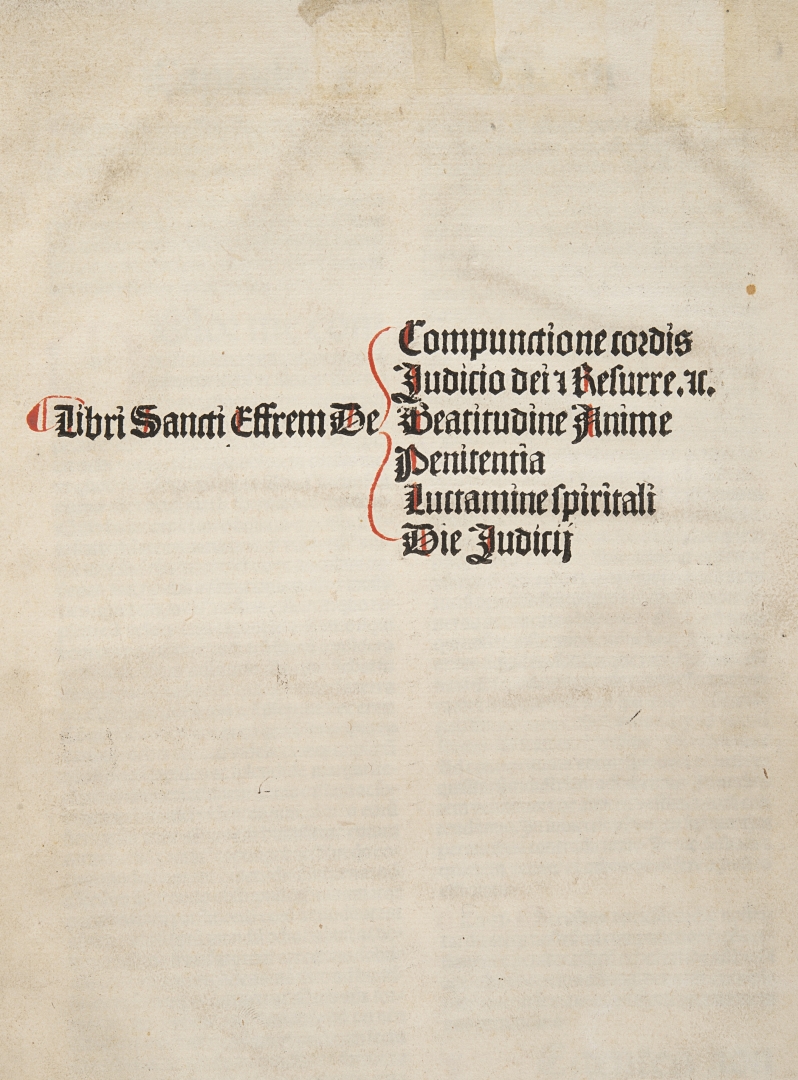 Libri Sancti Effrem De
Compunctione cordis
Judicio dei ⁊ Resurre.⁊c.
Beatitudine Anime
Penitentia
Luctamine spiritali
Die Judicij